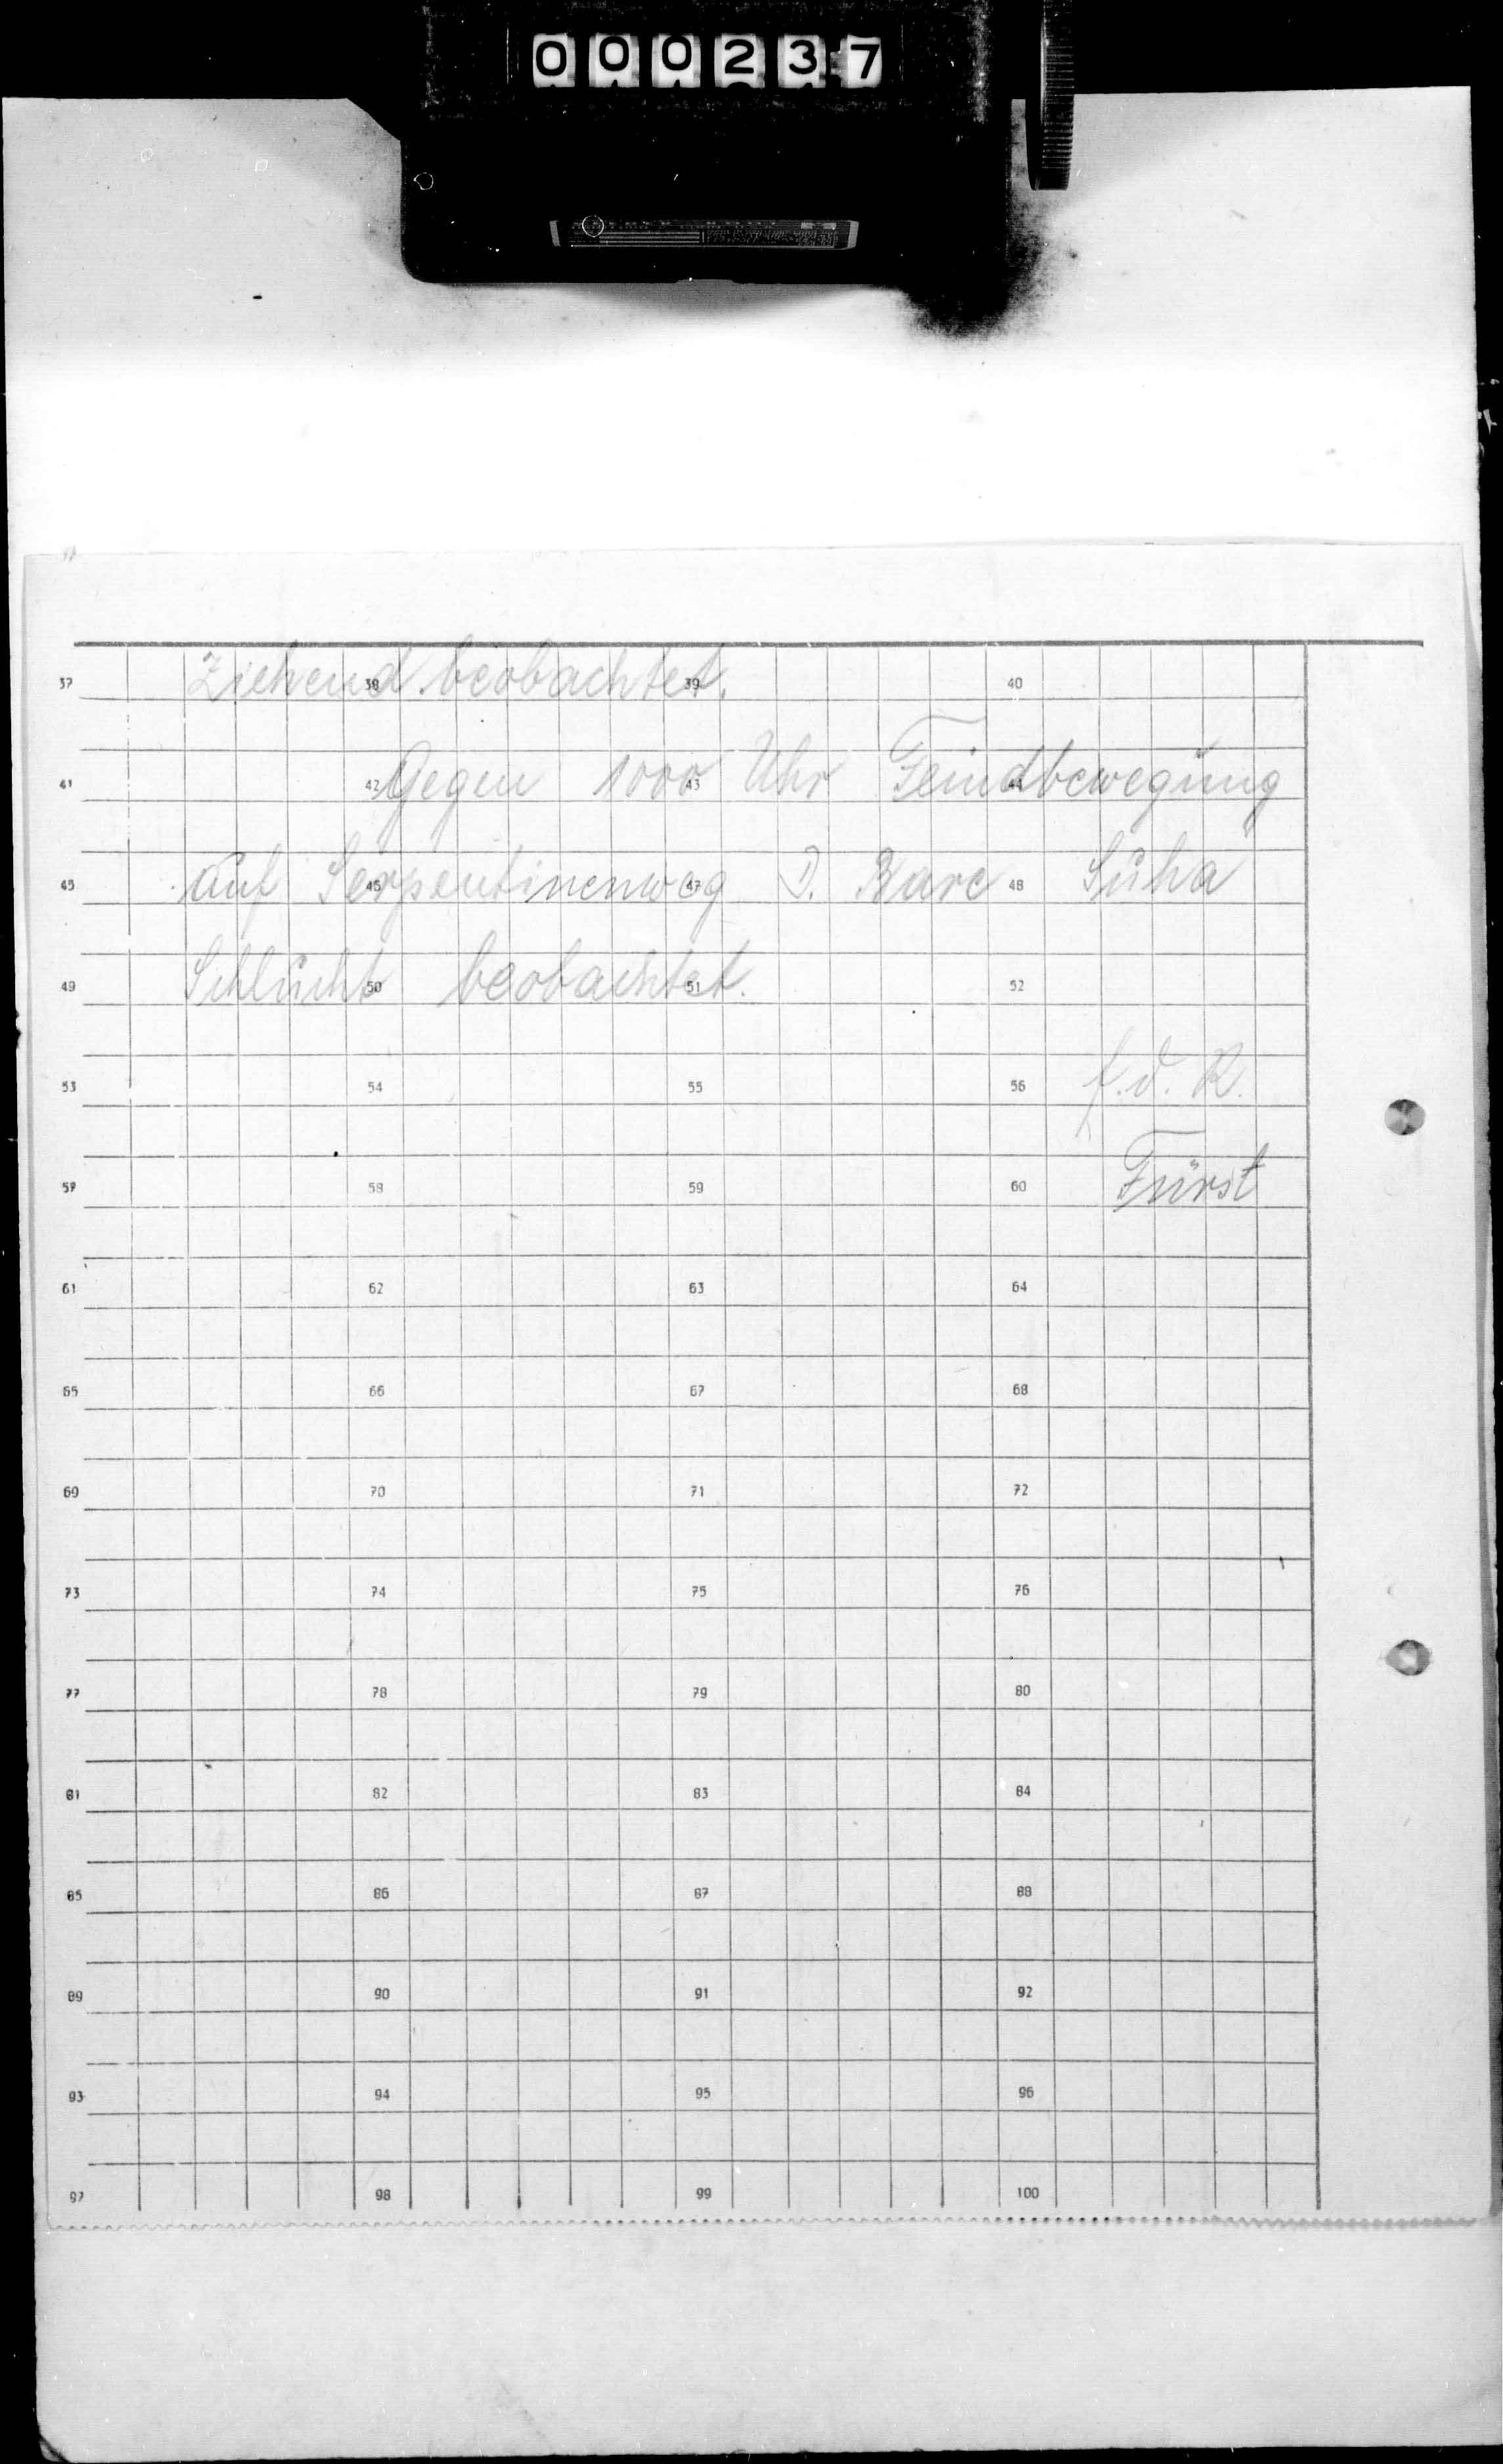 000237
37 Ziehend 38 beobachtet. 39 40
41 42 Gegen 1000 43 Uhr Feindbewegung 44
45 auf Serpentinenweg 46 47 D. Bare 48 Suha
49 Schlucht 50 beobachtet. 51 52
53 54 55 56 f.d.R.
57 58 59 60 Fürst
61 62 63 64
65 66 67 68
69 70 71 72
73 74 75 76
77 78 79 80
81 82 83 84
85 86 87 88
89 90 91 92
93 94 95 96
97 98 99 100